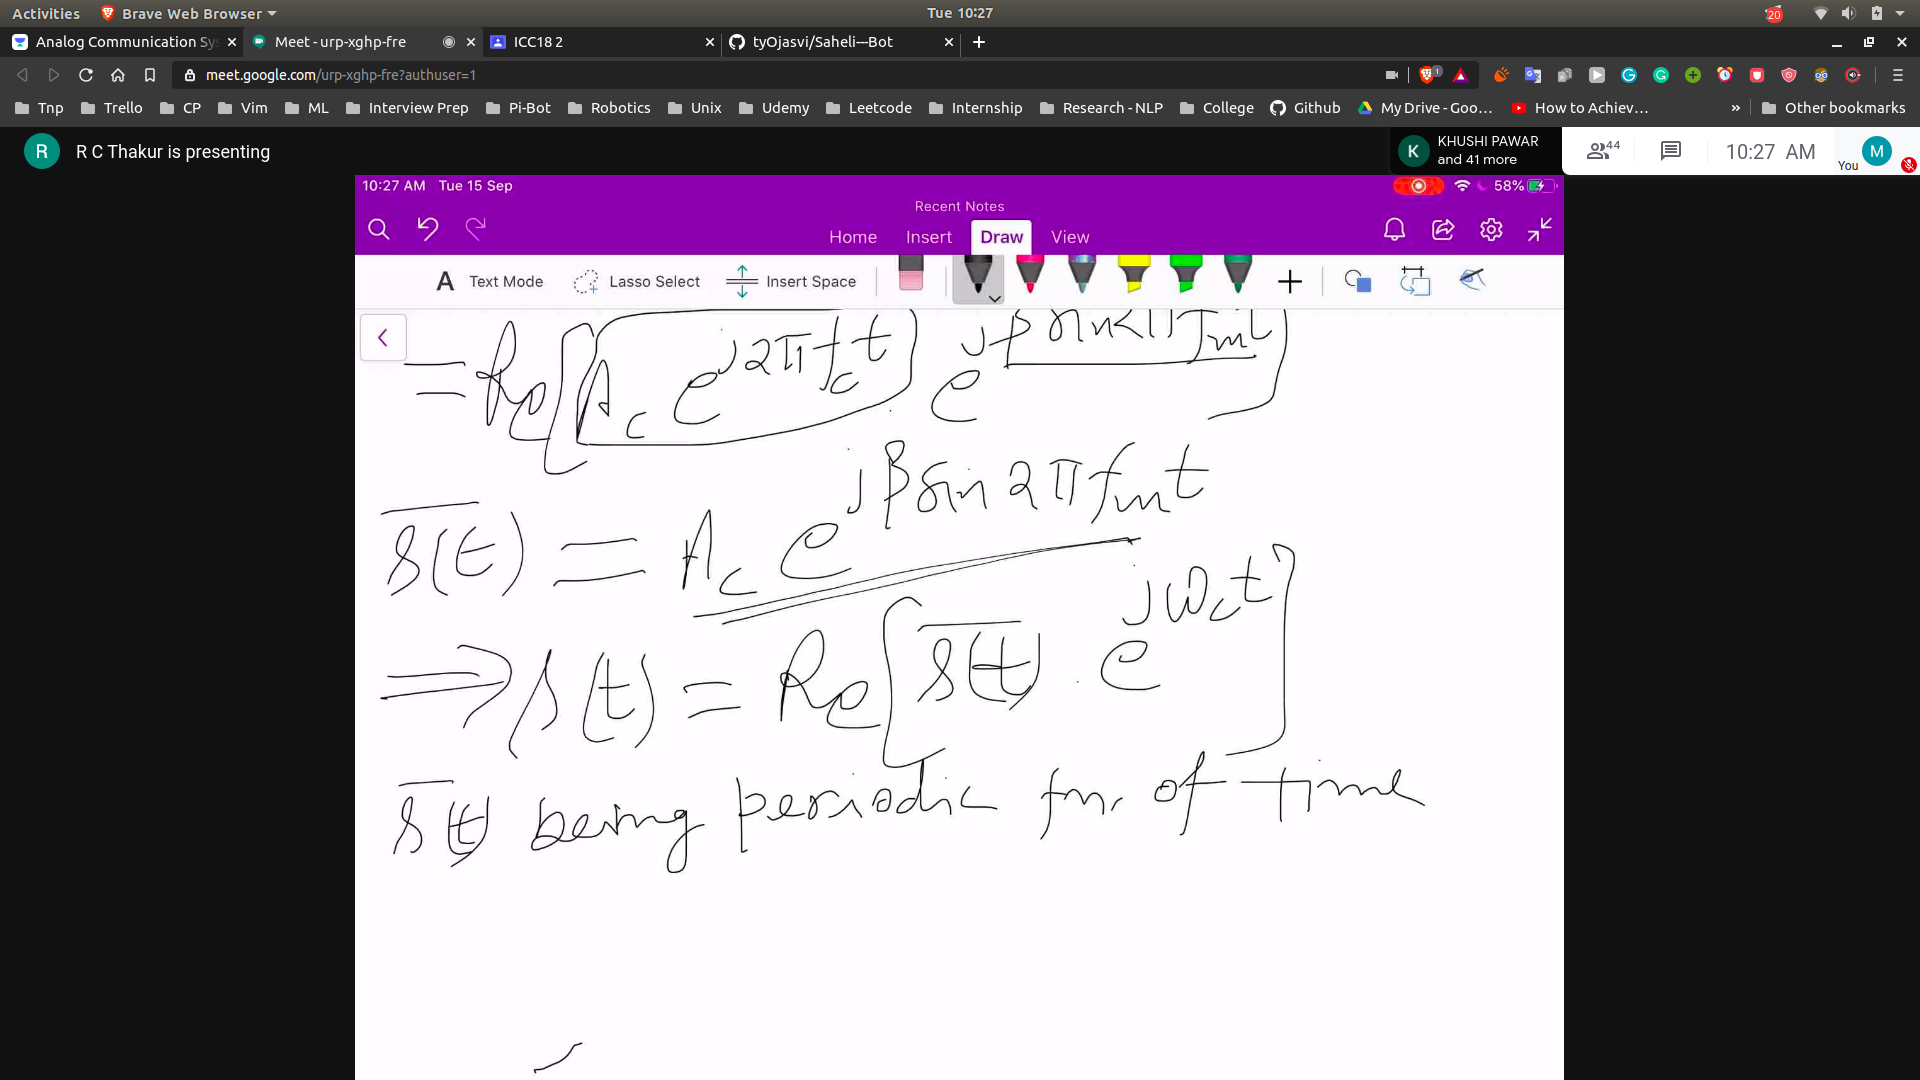 Activities Brave Web Browser Tue 10:27 20
Analog Communication Sy Meet - urp-xghp-fre ICC18 2 tyOjasvi/Saheli---Bot
meet.google.com/urp-xghp-fre?authuser=1 1
Tnp Trello CP Vim ML Interview Prep Pi-Bot Robotics Unix Udemy Leetcode Internship Research - NLP College Github My Drive - Goo… How to Achiev… » Other bookmarks
R R C Thakur is presenting K KHUSHI PAWAR and 41 more 44 10:27 AM You M
10:27 AM Tue 15 Sep 58%
Recent Notes
Home Insert Draw View
A Text Mode Lasso Select Insert Space
= Re[A_c e^{j2πf_c t} e^{jβ sin2πf_m t}]
s̄(t) = A_c e^{jβ sin 2πf_m t}
⇒ s(t) = Re[s̄(t) . e^{jω_c t}]
s̄(t) being periodic fn. of time